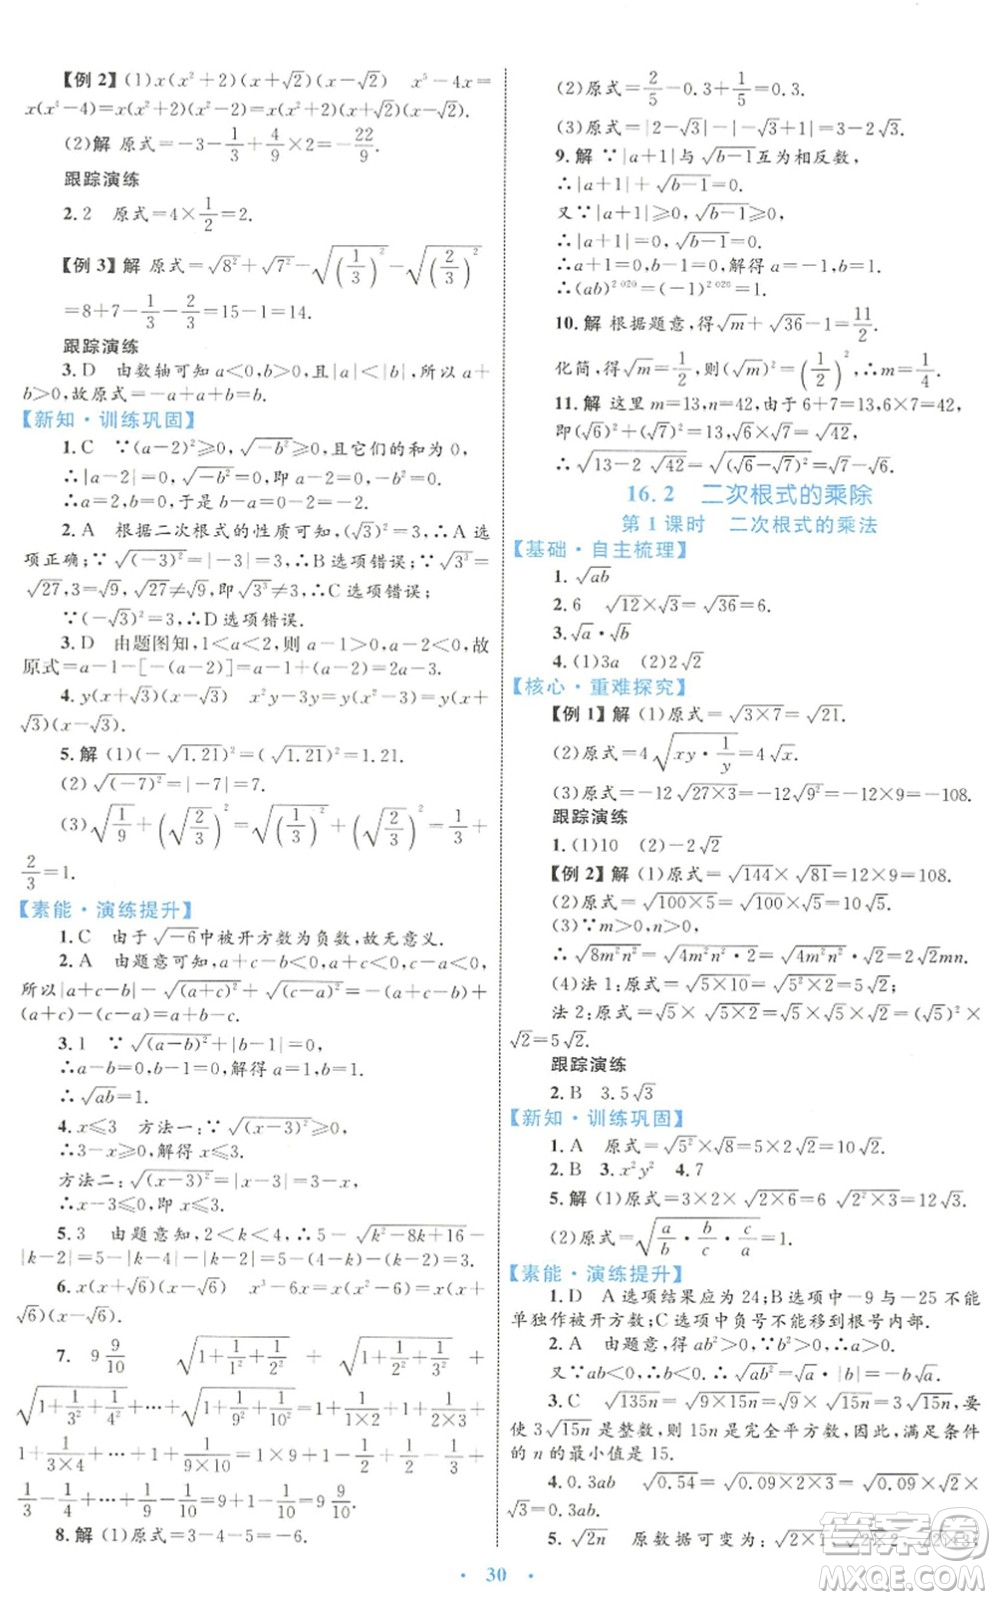 【例 2】(1)x(x²+2)(x+√2)(x-√2)　x⁵-4x=
x(x⁴-4)=x(x²+2)(x²-2)=x(x²+2)(x+√2)(x-√2).
(2)解 原式=-3-1/3+4/9×2=-22/9.
跟踪演练
2. 2　原式=4×1/2=2.
【例 3】解 原式=√8²+√7²-√(1/3)²-√(2/3)²
=8+7-1/3-2/3=15-1=14.
跟踪演练
3. D　由数轴可知 a<0,b>0,|a|<|b|,所以 a+
b>0,故原式=-a+a+b=b.
【新知·训练巩固】
1. C　∵(a-2)²≥0,√(-b²)≥0,且它们的和为 0,
∴|a-2|=0,√(-b²)=0,∴a=2,b=0.
于是 a-b=2-0=2,故选 C.
2. A　根据二次根式的性质可知(√3)²=3,A 选
项正确;∵√(-3)²=3,∴B 选项错误;∵√3³=
√27,3≠√27,∴√27≠√9,即√3³≠3,∴C 选项错误;
∵(-√3)²=3,∴D 选项错误.
3. D　由题图知,1<a<2,则 a-1>0,a-2<0,故
原式=a-1-[-(a-2)]=a-1+(a-2)=2a-3.
4. y(x+√3)(x-√3)　x²y-3y=y(x²-3)=y(x+
√3)(x-√3).
5. 解 (1)(-√1.21)²=(√1.21)²=1.21.
(2)√(-7)²=|-7|=7.
(3)√1/9+(√2/3)²=√(1/3)²+(√2/3)²=1/3+
2/3=1.
【素能·演练提升】
1. C　由于√-6中被开方数为负数,故无意义.
2. A　由题意可知,a+c-b>0,a+c>0,c-a<0,
所以|a+c-b|-√(a+c)²+√(c-a)²=a+c-b-
(a+c)-(c-a)=a-b-c.
3. 1　∵√(a-b)²+|b-1|=0,
∴a-b=0,b-1=0,解得 a=b=1.
∴√ab=1.
4. x≤3　方法一:∵√(x-3)²≥0,
∴3-x≥0,解得 x≤3.
方法二:√(x-3)²=|x-3|=3-x,
∴x-3≤0,即 x≤3.
5. 3　由题意知,2<k<4,∴5-√(k²-8k+16)-
|k-2|=5-|k-4|-|k-2|=5-(4-k)-(k-2)=3.
6. x(x+√6)(x-√6)　x³-6x=x(x²-6)=x(x+
√6)(x-√6).
7. 9 9/10　√(1+1/1²+1/2²)+√(1+1/2²+1/3²)+
√(1+1/3²+1/4²)+…+√(1+1/9²+1/10²)=1+1/(1×2)+1+1/(2×3)+
1+1/(3×4)+…+1+1/(9×10)=1×9+1-1/2+1/2-1/3+
1/3-1/4+…+1/9-1/10=9+1-1/10=9 9/10.
8. 解 (1)原式=3-4-5=-6.
(2)原式=2/5-0.3+1/5=0.3.
(3)原式=|2-√3|-|-√3+1|=3-2√3.
9. 解 ∵|a+1|与√(b-1)互为相反数,
∴|a+1|+√(b-1)=0.
又∵|a+1|≥0,√(b-1)≥0.
∴a+1=0,b-1=0,解得 a=-1,b=1.
∴(ab)²⁰²⁰=(-1)²⁰²⁰=1.
10. 解 根据题意,得√m+√36-1=11/2.
化简,得√m=1/2,∴m=(1/2)²,∴m=1/4.
11. 解 这里 m=13,n=42,由于 6+7=13,6×7=42,
即(√6)²+(√7)²=13,√6×√7=√42,
∴√(13-2√42)=√(√6-√7)²=√7-√6.
16. 2　二次根式的乘除
第 1 课时　二次根式的乘法
【基础·自主梳理】
1. √ab
2. 6　√12×√3=√36=6.
3. √a·√b
4. (1)3a　(2)2√2
【核心·重难探究】
【例 1】解 (1)原式=√(3×7)=√21.
(2)原式=4√(xy·1/y)=4√x.
(3)原式=-12√(27×3)=-12×9=-108.
跟踪演练
1. (1)10　(2)-2√2
【例 2】解 (1)原式=√144×√81=12×9=108.
(2)原式=√(16×5)=√16×√5=4√5.
(3)∵m>0,n>0,
∴√8m²n²=√(4m²n²·2)=√4m²n²·√2=2√2mn.
(4)法 1:原式=√(5×10)=√(5²×2)=5√2.
法 2:原式=√5×√(5×2)=√5×√5×√2=(√5)²×
√2=5√2.
跟踪演练
2. B　3. 5√3
【新知·训练巩固】
1. A　原式=√5²×√8=5×2√2=10√2.
2. B　3. x²y²　4. 7
5. 解 (1)原式=3×2×√(2×6)=6√(2²×3)=12√3.
(2)原式=√(a/b·b/c·c/a)=√1=1.
【素能·演练提升】
1. D　A 选项结果应为 24;B 选项中-9 与-25 不能
单独作被开方数;C 选项中负号不能移到根号内部.
2. A　由题意,得 ab²>0,∵b²>0,∴a>0.
又∵ab<0,∴b<0.∴√ab²=√a·|b|=-b√a.
3. C　√135n=√(9×15n)=√9×√15n=3√15n,要
使 3√15n是整数,则 15n是完全平方数,故满足条件
的 n 的最小值是 15.
4. 0.3ab　√0.54=√(0.09×2×3)=√0.09×√2×
√3=0.3ab.
5. √2n　原数据可变为:√(2×1),√(2×2),√(2×3),
· 30 ·
答案圈
MXQE.COM